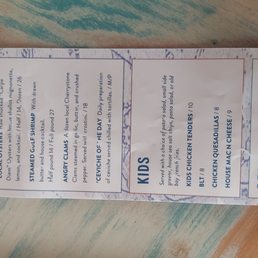 LOCAL OYSTERS
Down" Oysters with house shallot mignonette,
lemon, and cocktail. / Half / 14, Dozen / 26
STEAMED GULF SHRIMP With drawn
butter and house cocktail.
Half pound 14 / Full pound 27
ANGRY CLAMS A dozen local Cherrystone
Clams steamed in garlic, butter, and crushed
pepper. Served with crostini. / 18
CEVICHE OF THE DAY Daily preparation
of ceviche served chilled with tortillas. / M/P
KIDS
Served with a choice of potato salad, small side
greens, house sea salt chips, pasta salad, or old
bay french fries.
KIDS CHICKEN TENDERS / 10
BLT / 8
CHICKEN QUESADILLAS / 8
HOUSE MAC N CHEESE / 9